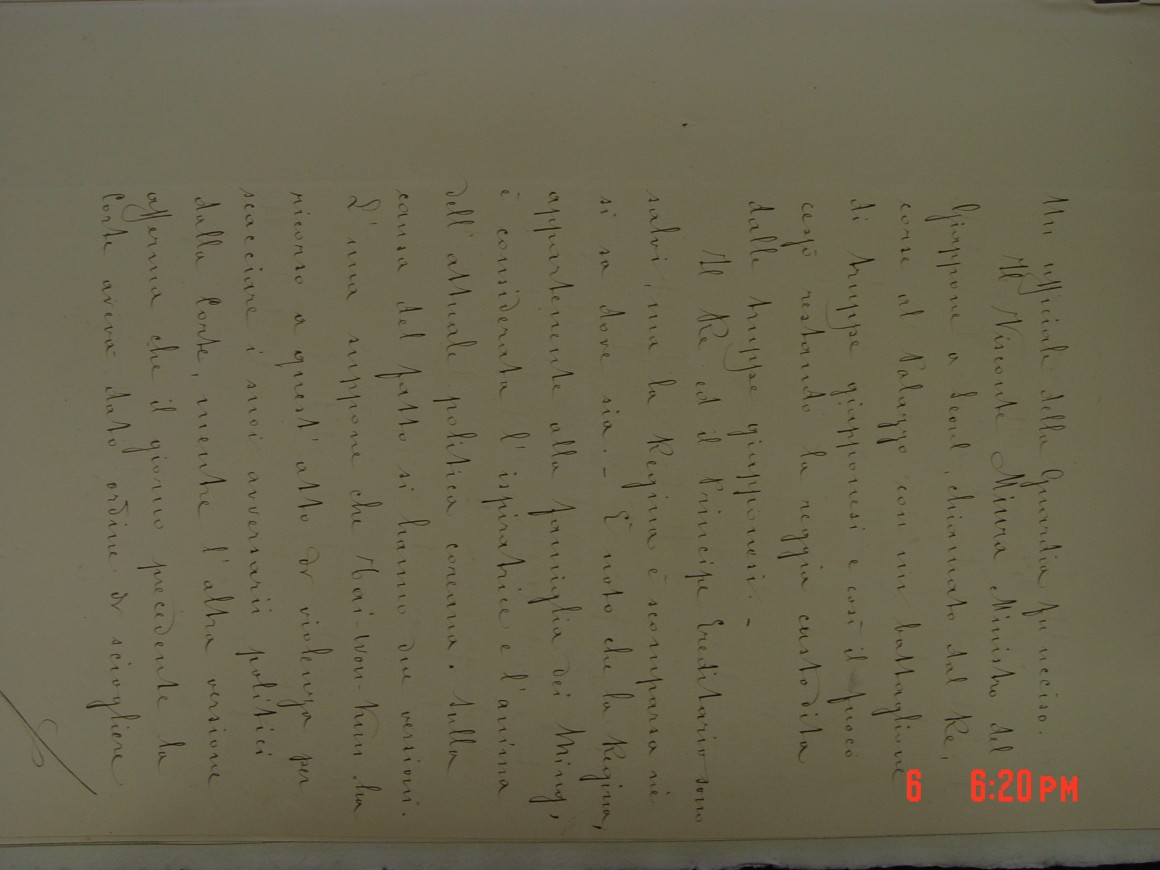 Un ufficiale della Guardia fu ucciso.
Il Visconte Miura Ministro del
Giappone a Seoul, chiamato dal Re,
corse al Palazzo con un battaglione
di truppe giapponesi e così il fuoco
cessò restando la reggia custodita
dalle truppe giapponesi. -
Il Re ed il Principe Ereditario sono
salvi, ma la Regina è scomparsa nè
si sa dove sia. - È noto che la Regina,
appartenente alla famiglia dei Ming,
è considerata l'ispiratrice e l'anima
dell'attuale politica coreana. Sulla
causa del fatto si hanno due versioni.
L'una suppone che Tai-Won-Kun ha
ricorso a quest'atto di violenza per
scacciare i suoi avversarii politici
dalla Corte, mentre l'altra versione
afferma che il giorno precedente la
Corte aveva dato ordine di sciogliere
6 6:20 PM